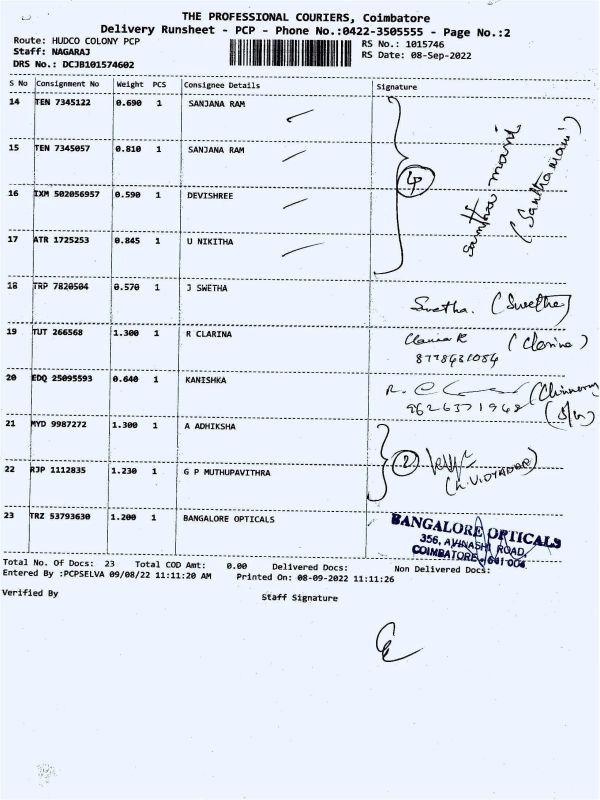 THE PROFESSIONAL COURIERS, Coimbatore
Delivery Runsheet - PCP - Phone No.:0422-3505555 - Page No.:2
Route: HUDCO COLONY PCP
Staff: NAGARAJ
DRS No.: DCJB101574602
RS No.: 1015746
RS Date: 08-Sep-2022
S No Consignment No Weight PCS Consignee Details Signature
14 TEN 7345122 0.690 1 SANJANA RAM
15 TEN 7345057 0.810 1 SANJANA RAM
16 IXM 502056957 0.590 1 DEVISHREE
17 ATR 1725253 0.845 1 U NIKITHA
4
santha mani
(Santhamani)
18 TRP 7820504 0.570 1 J SWETHA
Swetha. (Swetha)
19 TUT 266568 1.300 1 R CLARINA
Clarina R (Clarina)
8778431084
20 EDQ 25095593 0.640 1 KANISHKA
9626371948
21 MYD 9987272 1.300 1 A ADHIKSHA
22 RJP 1112835 1.230 1 G P MUTHUPAVITHRA
2
23 TRZ 53793630 1.200 1 BANGALORE OPTICALS
BANGALORE OPTICALS
356, AVINASHI ROAD,
COIMBATORE - 641 004.
Total No. Of Docs: 23 Total COD Amt: 0.00 Delivered Docs: Non Delivered Docs:
Entered By :PCPSELVA 09/08/22 11:11:20 AM Printed On: 08-09-2022 11:11:26
Verified By Staff Signature